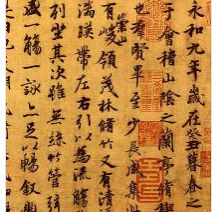 永和九年歲在癸丑暮春之
會稽山陰之蘭亭脩稧
也羣賢畢至少長咸集此
有崇山峻領茂林脩竹又有清
湍暎帶左右引以為流觴
列坐其次雖無絲竹管弦
盛一觴一詠亦足以暢敘